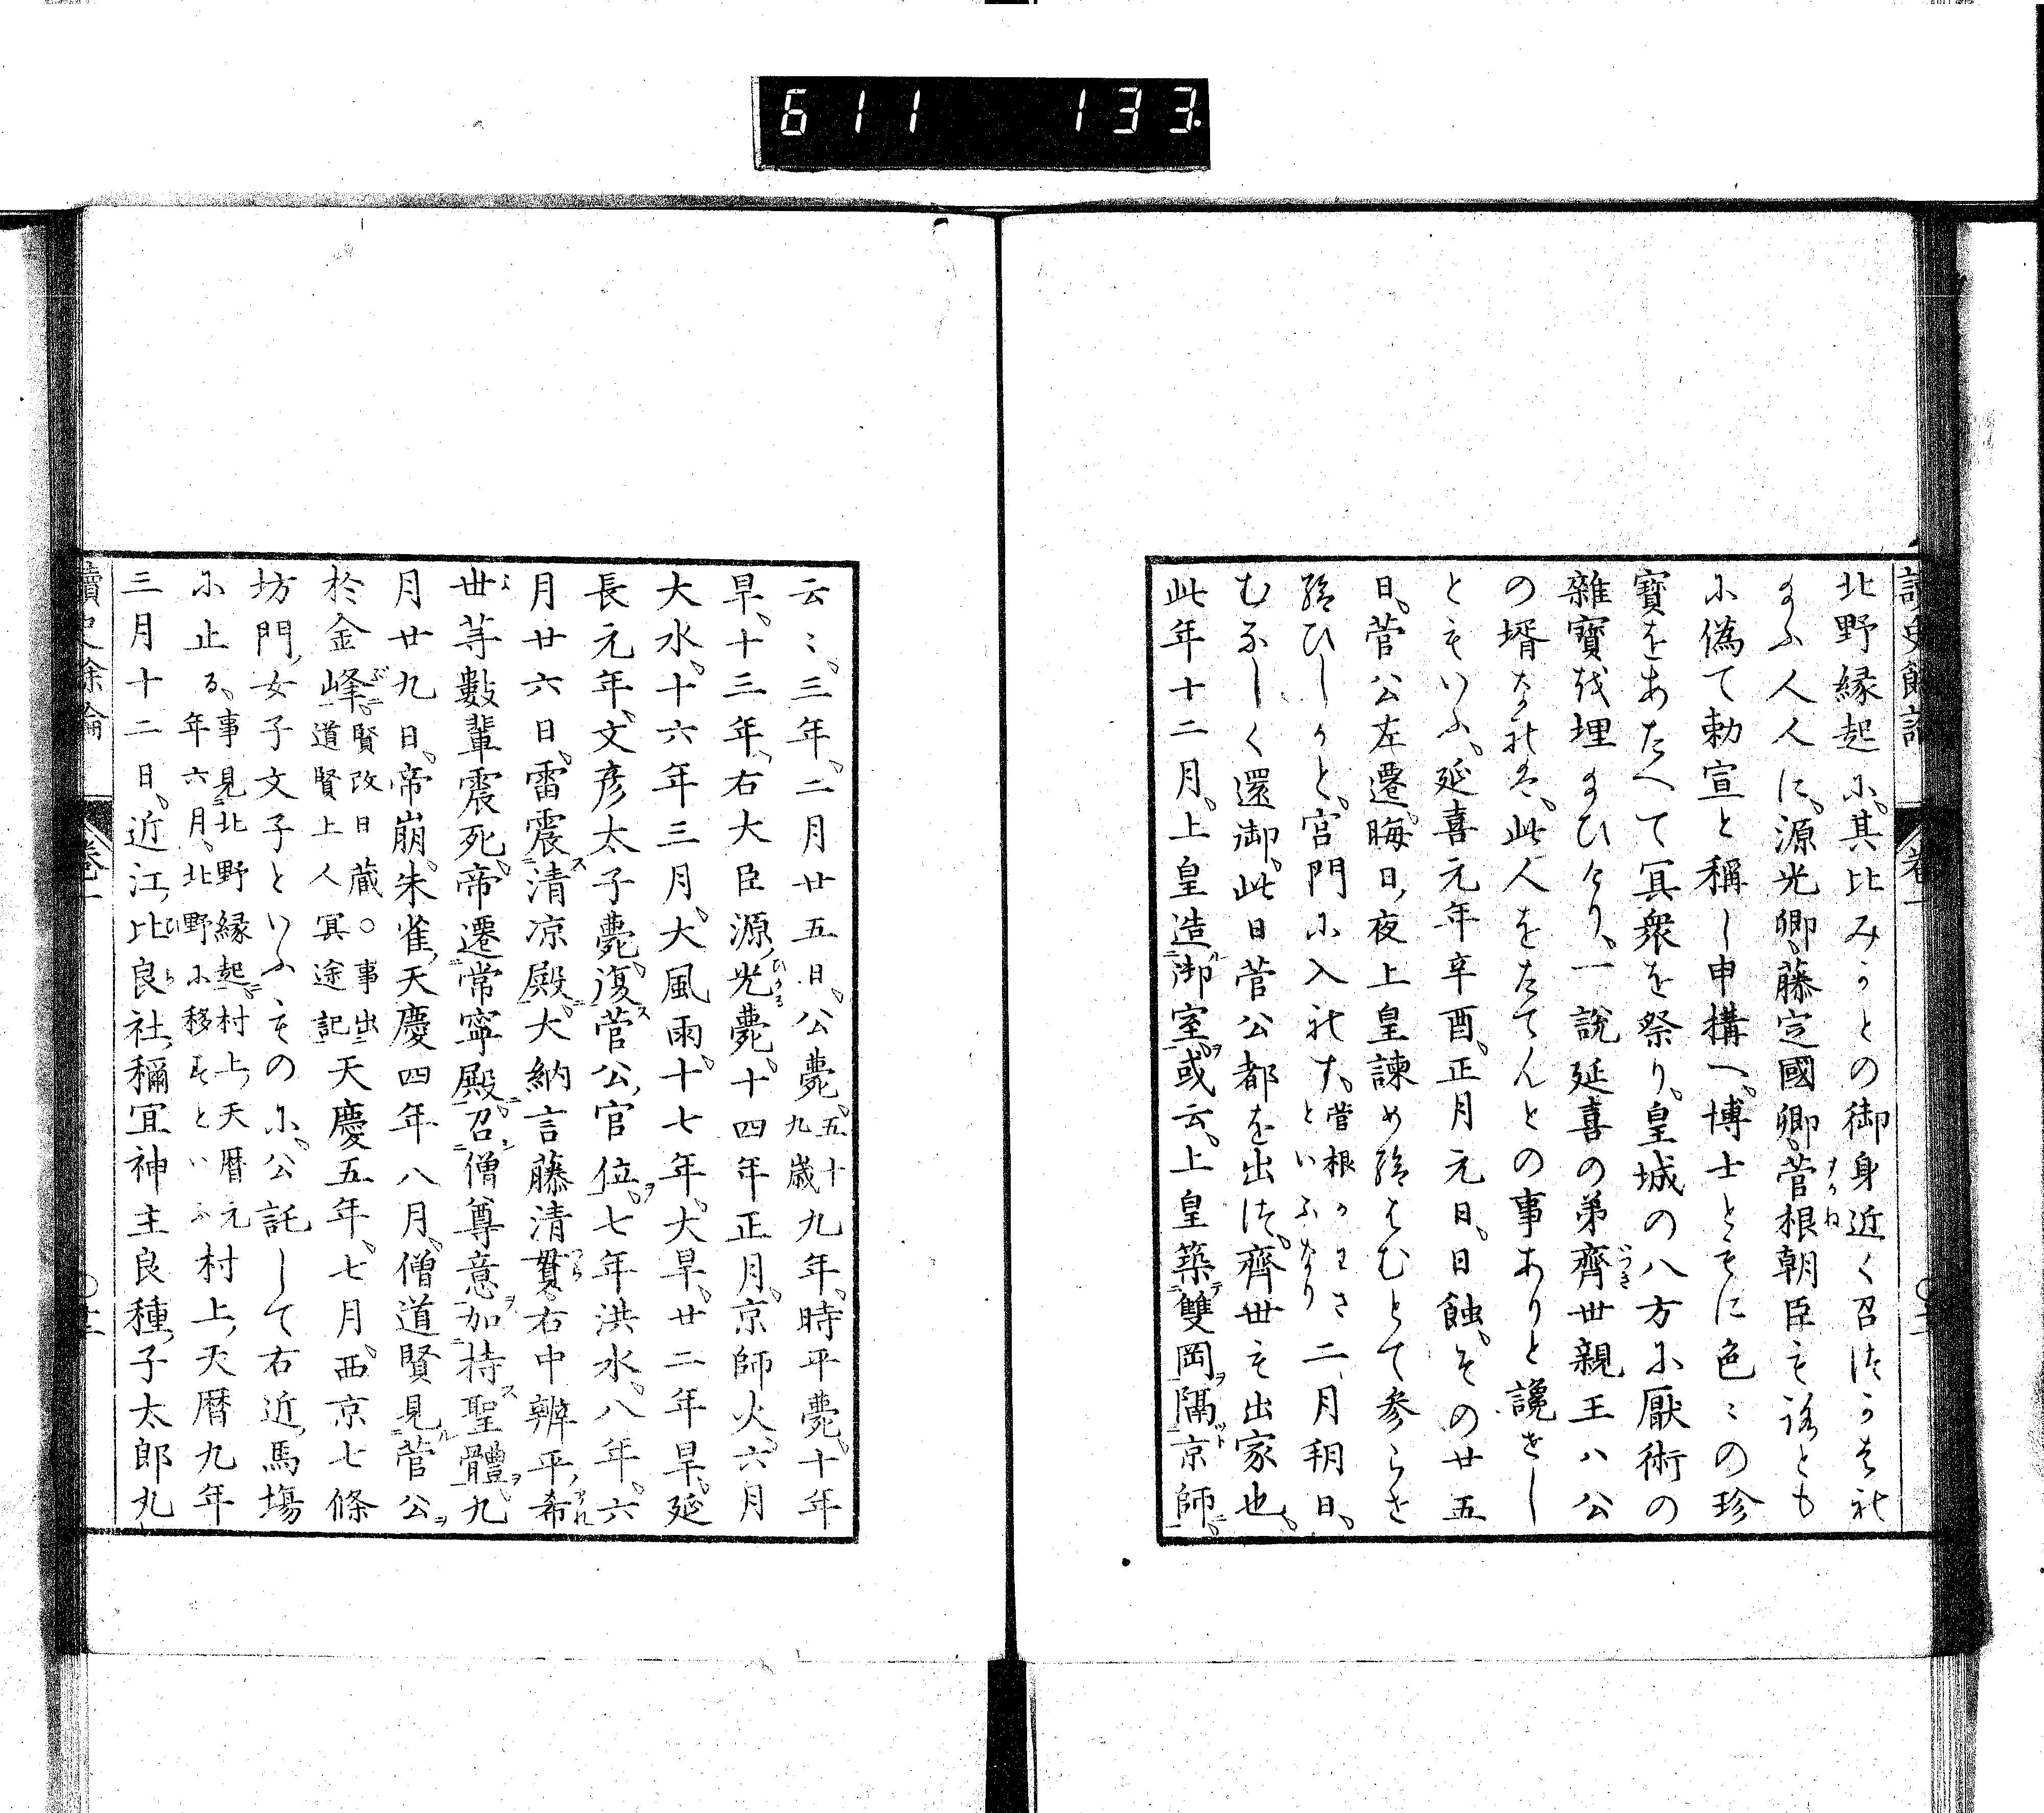 611 133
讀史餘論 卷一
北野縁起に。其比みかとの御身近く召つかはれ
給ふ人人に。源光卿。藤定國卿。菅根朝臣も語とも
に偽て勅宣と稱し申構へ。博士ともに色〻の珍
寶をあたへて冥衆を祭り。皇城の八方に厭術の
雜寶を埋給ひけり。一説延喜の弟齊世親王ハ公
の壻なれは。此人をたてんとの事ありと讒せし
ともいふ。延喜元年辛酉。正月元日。日蝕。その廿五
日。菅公左遷。晦日、夜上皇諫め給はむとて参らせ
給ひしかと。宮門に入れす。菅根かわさといふなり二月朔日。
むなしく還御。此日菅公都を出つ。齊世も出家也。
此年十二月。上皇造御室。或云。上皇築雙岡隔京師。
云〻。三年。二月廿五日。公薨。五十九歳九年。時平薨。十年
旱。十三年。右大臣源光薨。十四年正月。京師火。六月
大水。十六年三月。大風雨。十七年。大旱。廿二年旱。延
長元年。文彦太子薨。復菅公官位。七年洪水。八年。六
月廿六日。雷震清凉殿。大納言藤清貫。右中辨平希
世等數輩震死。帝遷常寧殿。召僧尊意加持聖體。九
月廿九日。帝崩。朱雀、天慶四年八月。僧道賢見菅公
於金峰。賢改日蔵〇事出道賢上人冥途記天慶五年。七月。西京七條
坊門、女子文子といふものに。公託して右近馬塲
に止る、事見北野縁起。村上、天暦元年六月、北野に移すといふ村上、天暦九年
三月十二日。近江、比良社、禰宜神主良種、子太郎丸
讀史餘論 卷一